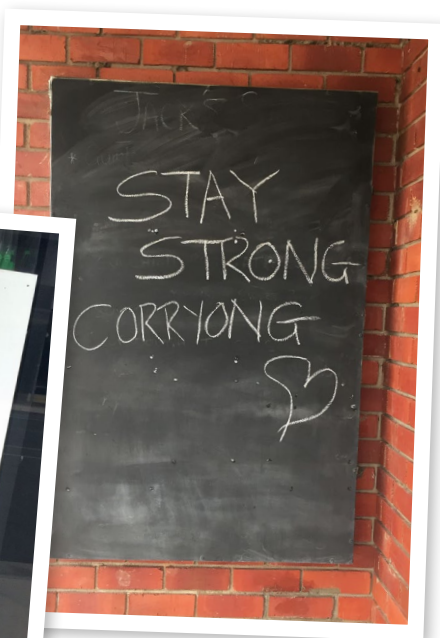 JACK'S
STAY
STRONG
CORRYONG